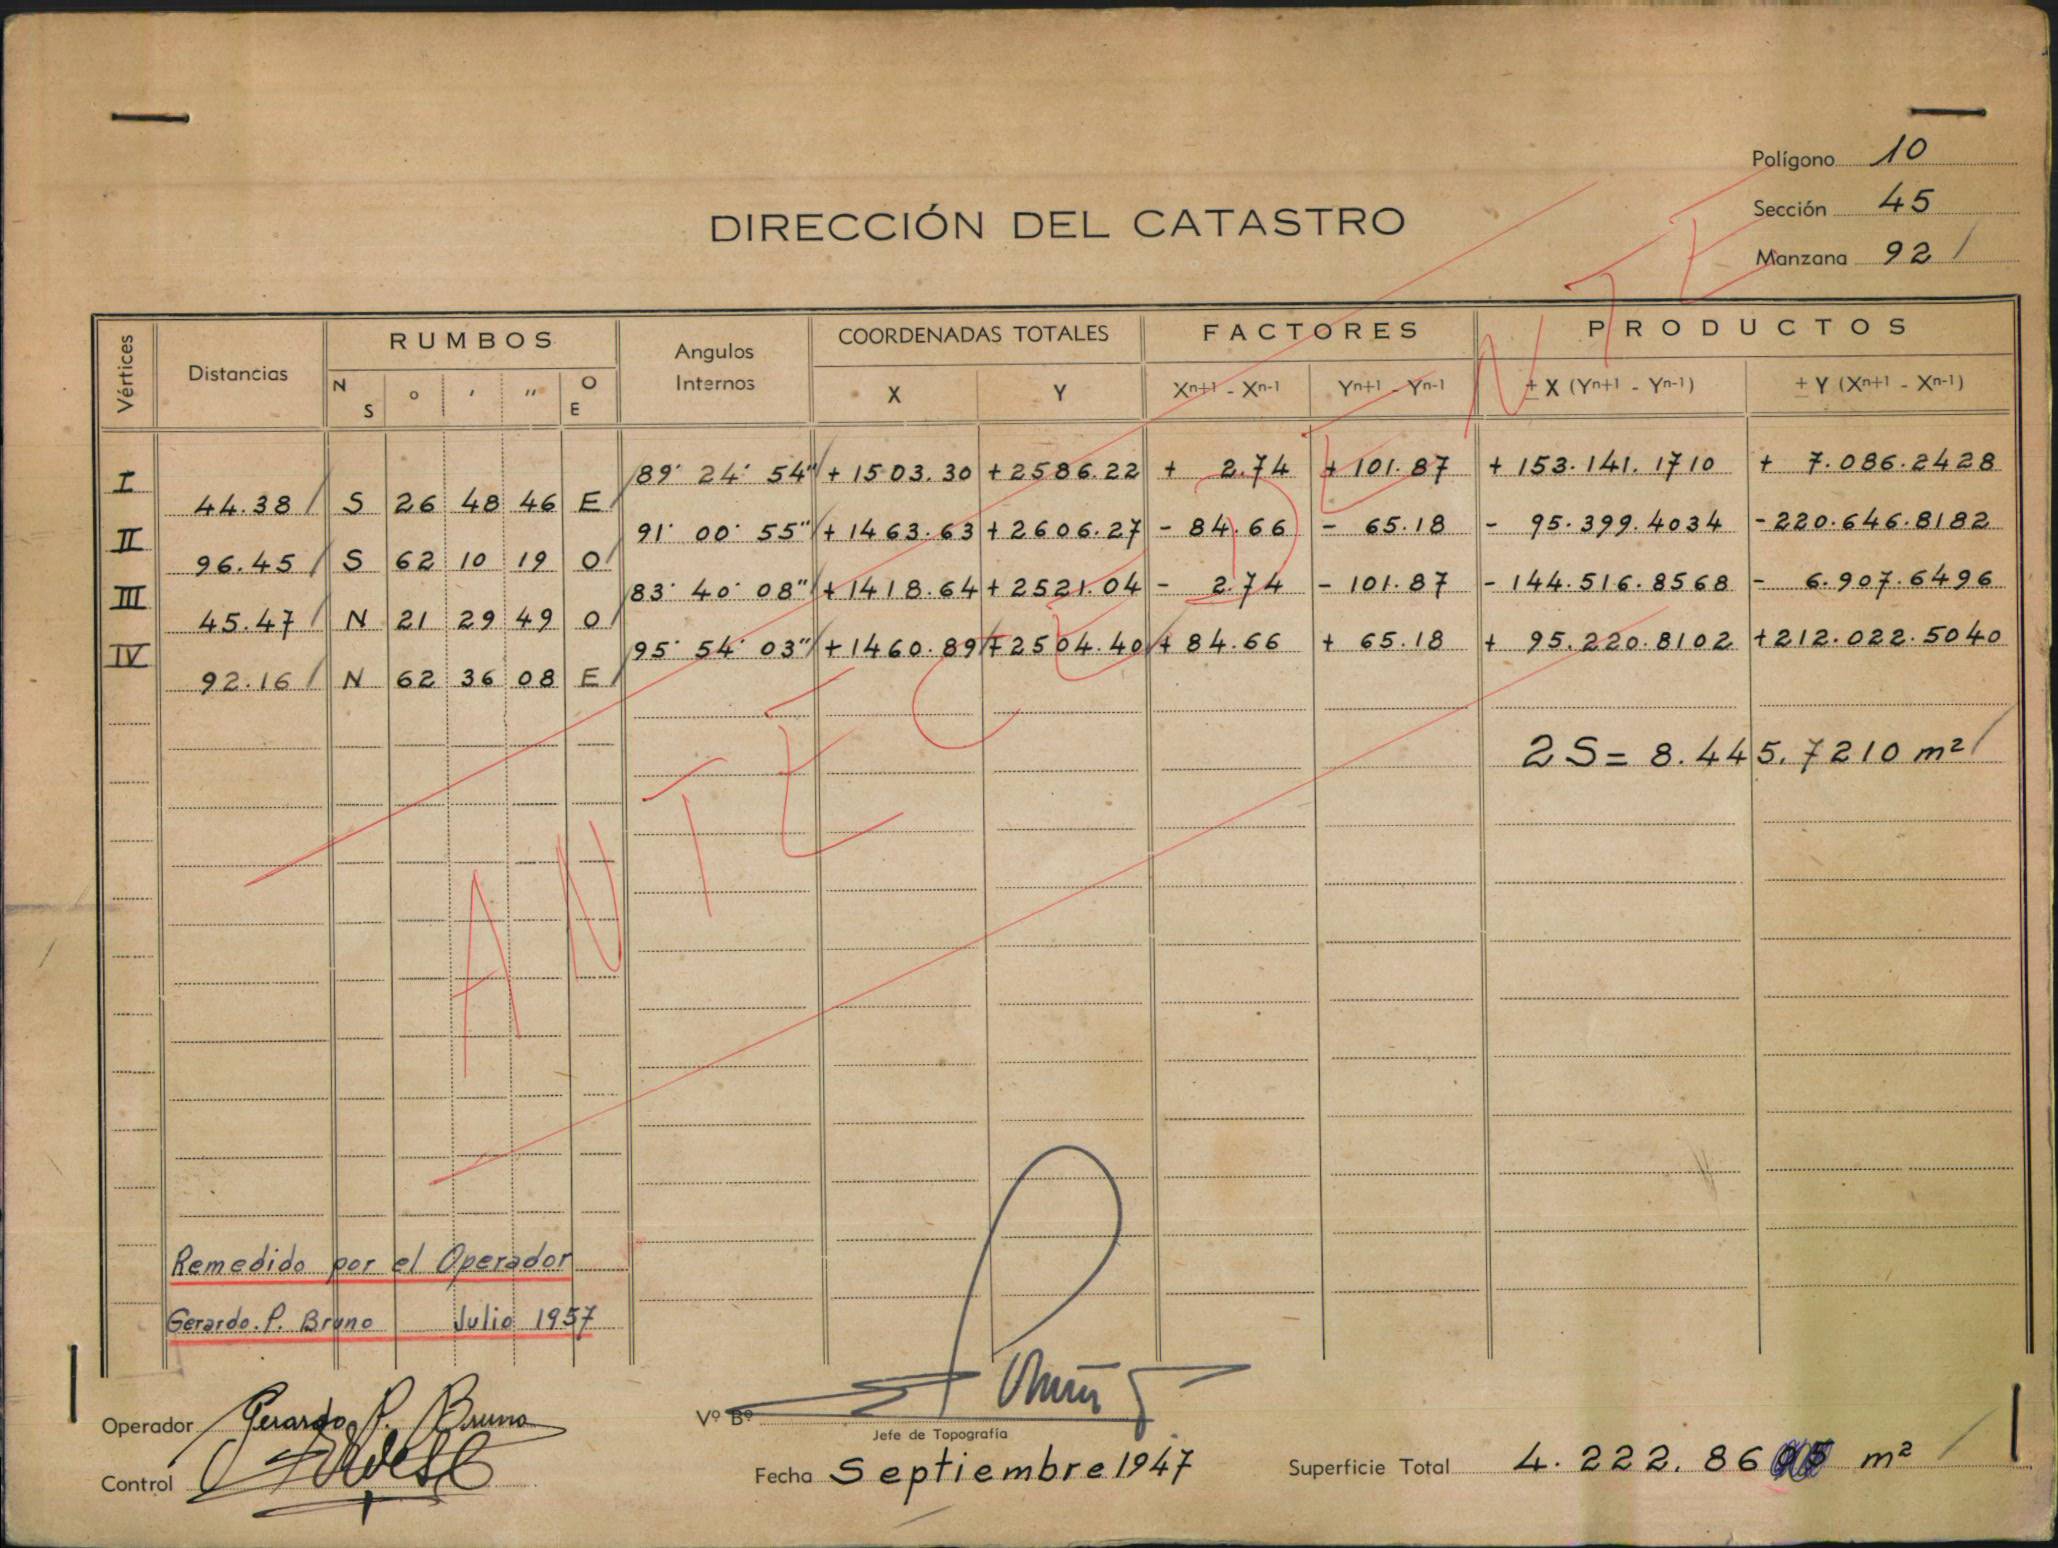 Polígono 10
Sección 45
Manzana 92
DIRECCIÓN DEL CATASTRO
Vértices Distancias RUMBOS Angulos Internos COORDENADAS TOTALES FACTORES PRODUCTOS
N S ° ' " O E X Y Xn+1 - Xn-1 Yn+1 - Yn-1 ± X (Yn+1 - Yn-1) ± Y (Xn+1 - Xn-1)
I 89° 24' 54" +1503.30 +2586.22 + 2.74 + 101.87 + 153.141.1710 + 7.086.2428
44.38 S 26 48 46 E
II 91° 00' 55" +1463.63 +2606.27 - 84.66 - 65.18 - 95.399.4034 -220.646.8182
96.45 S 62 10 19 O
III 83° 40' 08" +1418.64 +2521.04 - 2.74 - 101.87 -144.516.8568 - 6.907.6496
45.47 N 21 29 49 O
IV 95° 54' 03" +1460.89 +2504.40 + 84.66 + 65.18 + 95.220.8102 +212.022.5040
92.16 N 62 36 08 E
2S= 8.445.7210 m²
ANTECEDENTE
Remedido por el Operador
Gerardo. P. Bruno Julio 1957
Operador Gerardo P. Bruno
Control
Vº Bº
Jefe de Topografía
Fecha Septiembre 1947
Superficie Total 4.222.86 m²